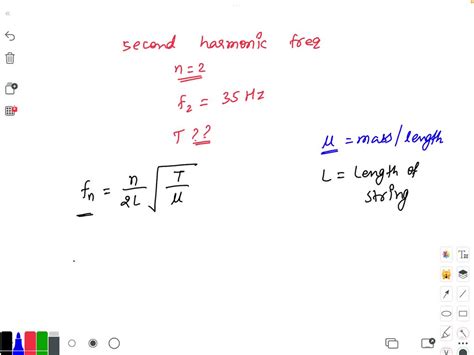 second harmonic freq
n=2
f₂ = 35 Hz
T ??
μ = mass/length
L = Length of
string
fₙ = n/2L √T/μ